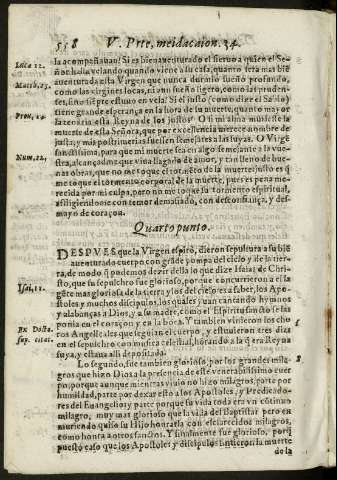 558 V. Prte, meidacaion. 34.
la acompañauan! Si es bienauenturado el sieruo a quien el Se-
Luca 12. ñor halla velando quando viene a su casa, quanto sera mas bie
auenturada esta Virgen que nunca durmio sueño profundo,
Matth. 25. como las virgines locas, ni aun sueño ligero, como las pruden-
tes, sino siẽpre estuuo en vela! Si el justo (como dize el Sabio)
Prou. 14. tiene grande esperança en la hora de su muerte, quanto mayor
la tenaria esta Reyna de los justos? O si mi alma muriesse la
muerte de esta Señora, que por excellencia merece nombre de
Num. 22. justa, y mis postrimerias fuessen semejantes a las suyas. O Virgẽ
santissima, para que mi muerte sea en algo semejante a la vue-
stra, alcançadme que viua llagado de amor, y tan lleno de bue-
nas obras, que no me toque el tormẽto de la muerte: justo es q̃
me toque el tormento corporal de la muerte, pues es pena me-
recida por mi culpa, pero no me toque su tormento espiritual,
afligiendome con temor demasiado, con desconfiança, y des-
mayo de coraçon.
Quarto punto.
DESPVES que la Virgen espiró, dieron sepultura a su biẽ
auenturado cuerpo con grãde pompa del cielo y de la tier-
ra, de modo q̃ podemos dezir della lo que dize Isaias de Chri-
Isai. 11. sto, que su sepulchro fue glorioso, porque concurrieron a el la
gẽte mas gloriosa de la tierra y los del cielo: es a saber, los Apo-
stoles y muchos discipulos, los quales yuan cantando hymnos
y alabanças a Dios, y a su madre, como el Espiritu sancto se las
ponia en el coraçon y en la bora. Y tambien vinieron los cho
Ex Docto. ros Angelicales que seguian el cuerpo, y estuuieron tres dias
sup. citat. en el sepulchro con musica celestial, hõrando a la q̃ era Reyna
suya, y estaua alli depositada.
Lo segundo, fue tambien glorioso, por los grandes mila-
gros que hizo Dios a la presencia de este venerabilissimo cuer
po; porque aunque mientras viuio no hizo milagros, parte por
humildad, parte por dexar esto a los Apostoles, y Predicado-
res del Euangelio; y parte porque su vida toda era vn cõtinuo
milagro, muy mas glorioso que la vida del Baptista: pero en
muriendo quiso su Hijo honrarla con esclarecidos milagros,
como honra a otros sanctos. Y finalmente fue glorioso, porq̃
puesto caso que los Apostoles y discipulos sintieron la muerte
de la